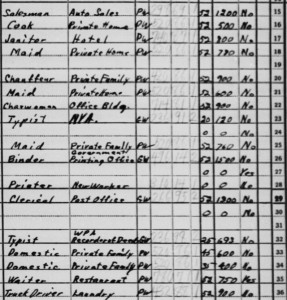 Salesman Auto Sales PW 52 1200 No 15
Cook Private Home PW 52 500 No 16
Janitor Hotel PW 52 800 No 17
Maid Private Home PW 52 780 No 18
19
Chauffeur Private Family PW 52 900 No 20
Maid Private Home PW 52 600 No 21
Charwoman Office Bldg. 52 900 No 22
Typist NYA. GW 20 120 No 23
0 0 No 24
Maid Private Family PW 52 760 No 25
Government
Binder Printing Office GW 52 1500 No 26
0 0 Yes 27
Printer New Worker 0 0 No 28
Clerical Post Office GW 52 1300 No 29
0 0 No 30
31
WPA
Typist Recorder of Deeds GW 25 693 No 32
Domestic Private Family PW 45 600 No 33
Domestic Private Family PW 35 400 No 34
Waiter Restaurant PW 52 750 Yes 35
Truck Driver Laundry PW 52 900 No 36